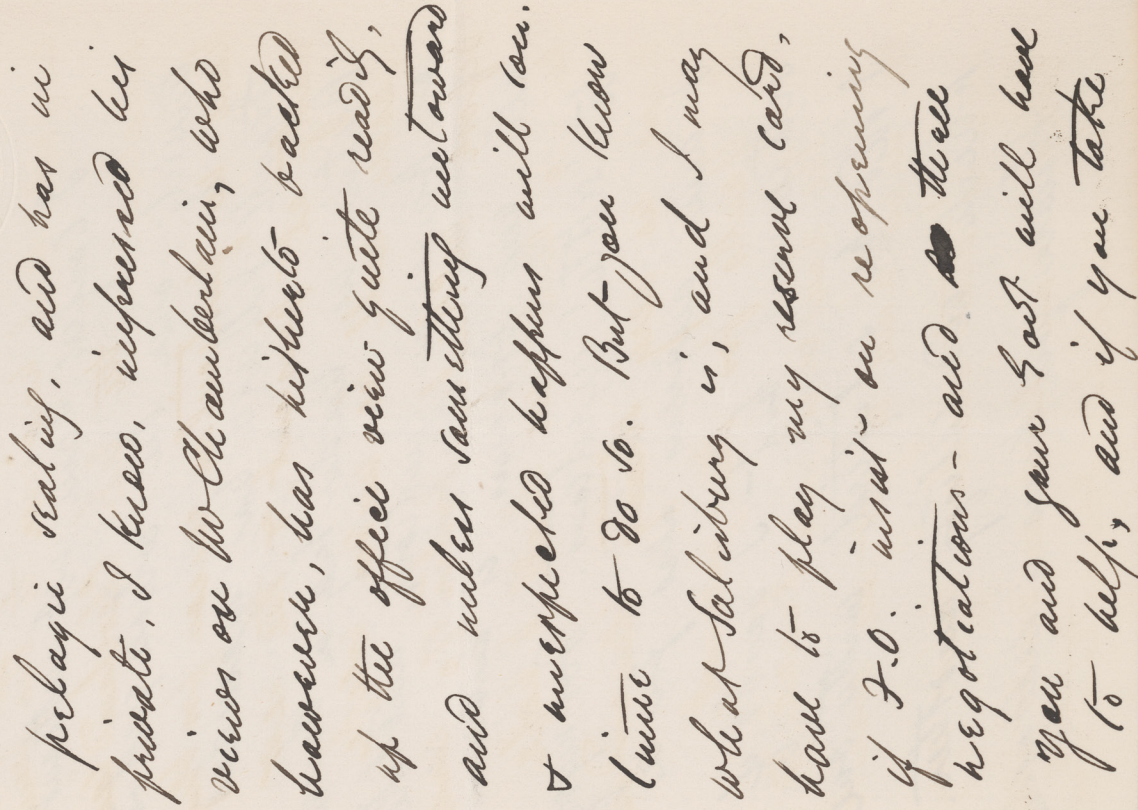 pelagic sealing, and has in
private, I know, impressed his
views on Mr Chamberlain, who
however, has hitherto backed
up the office view quite readily,
and unless something untoward
& unexpected happens will con-
tinue to do so. But you know
what Salisbury is, and I may
have to play my reserve card,
if F.O. insist on reopening
negotiations - and then
you and your Govt will have
to help, and if you take